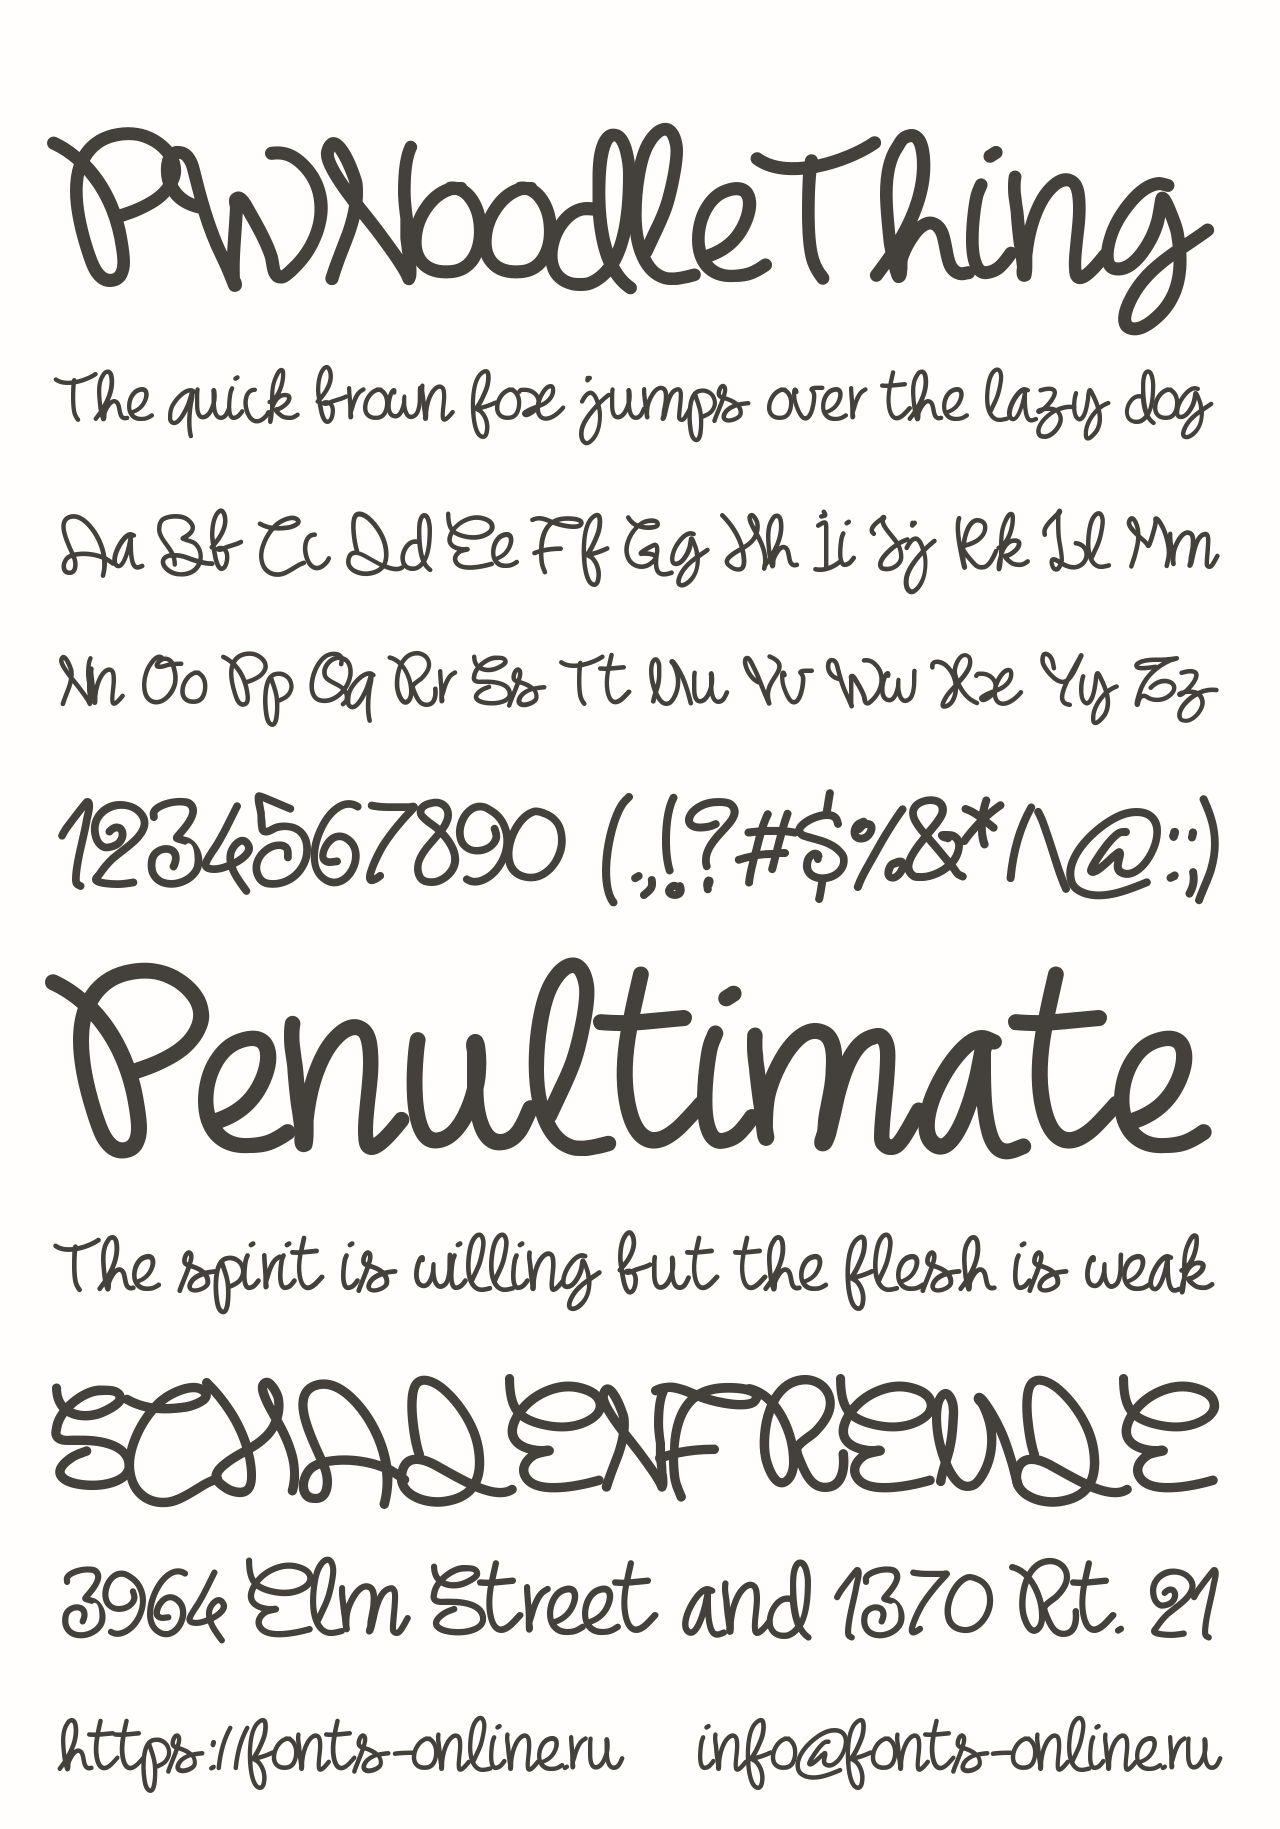 PWNoodleThing
The quick brown fox jumps over the lazy dog
Aa Bb Cc Dd Ee Ff Gg Hh Ii Jj Kk Ll Mm
Nn Oo Pp Qq Rr Ss Tt Uu Vv Ww Xx Yy Zz
1234567890 (.,!?#$%&*/\@:;)
Penultimate
The spirit is willing but the flesh is weak
SCHADENFREUDE
3964 Elm Street and 1370 Rt. 21
https://fonts-online.ru info@fonts-online.ru